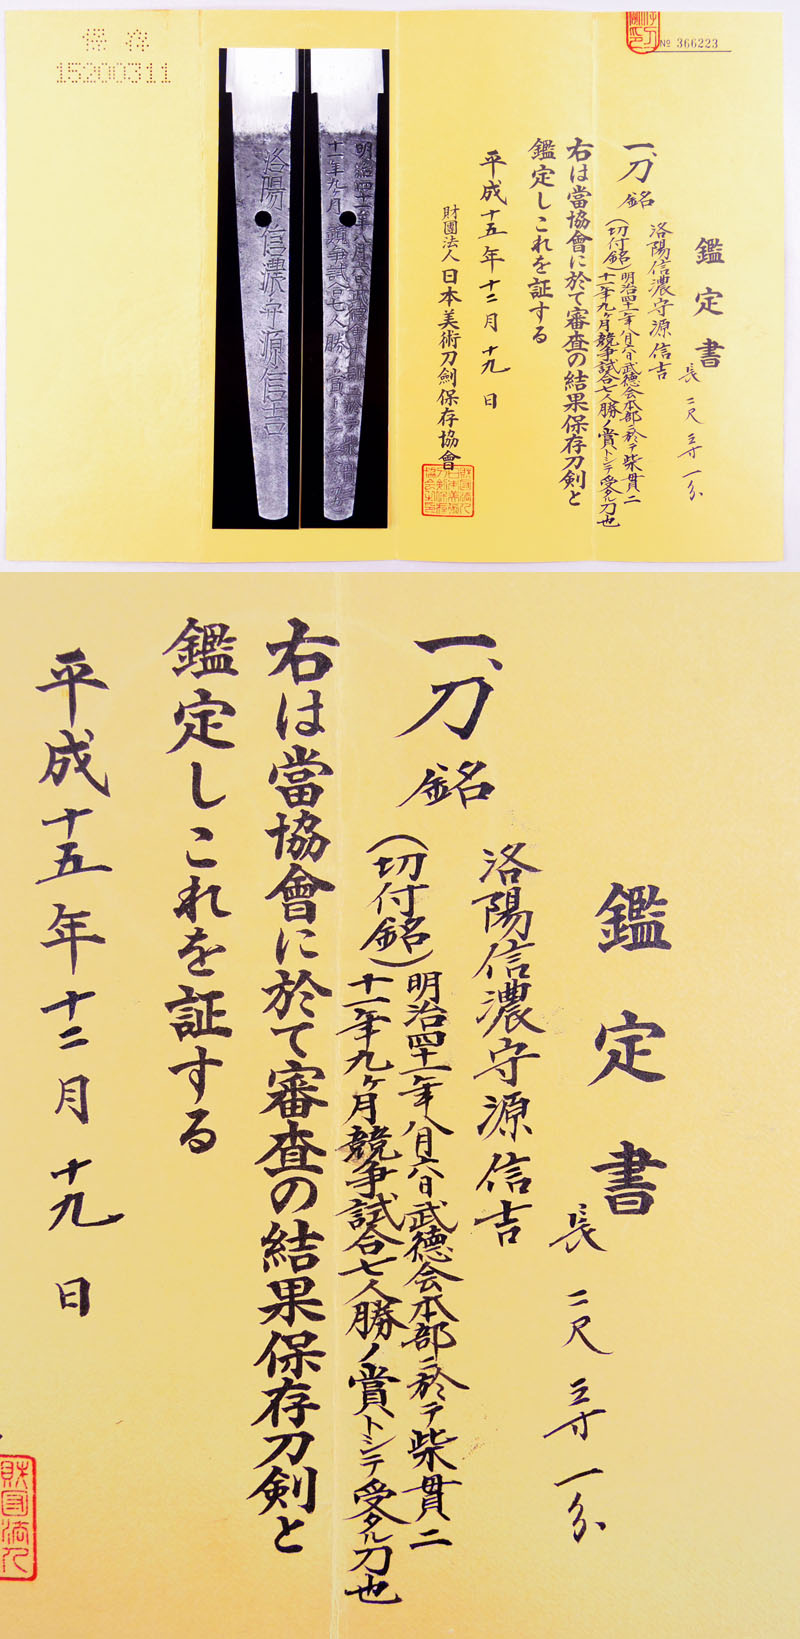 保存
15200311
№ 366223
鑑定書
長 二尺 三寸 一分
一、刀 銘
洛陽信濃守源信吉
(切付銘)
明治四十一年八月六日武徳会本部ニ於テ柴貫二
十一年九ヶ月競争試合七人勝ノ賞トシテ受タル刀也
右は當協會に於て審査の結果保存刀剣と
鑑定しこれを証する
平成十五年十二月十九日
財團法人日本美術刀劍保存協會
洛陽信濃守源信吉
鑑定書
長 二尺 三寸 一分
一、刀 銘
洛陽信濃守源信吉
(切付銘)
明治四十一年八月六日武徳会本部ニ於テ柴貫二
十一年九ヶ月競争試合七人勝ノ賞トシテ受タル刀也
右は當協會に於て審査の結果保存刀剣と
鑑定しこれを証する
平成十五年十二月十九日
財団法人